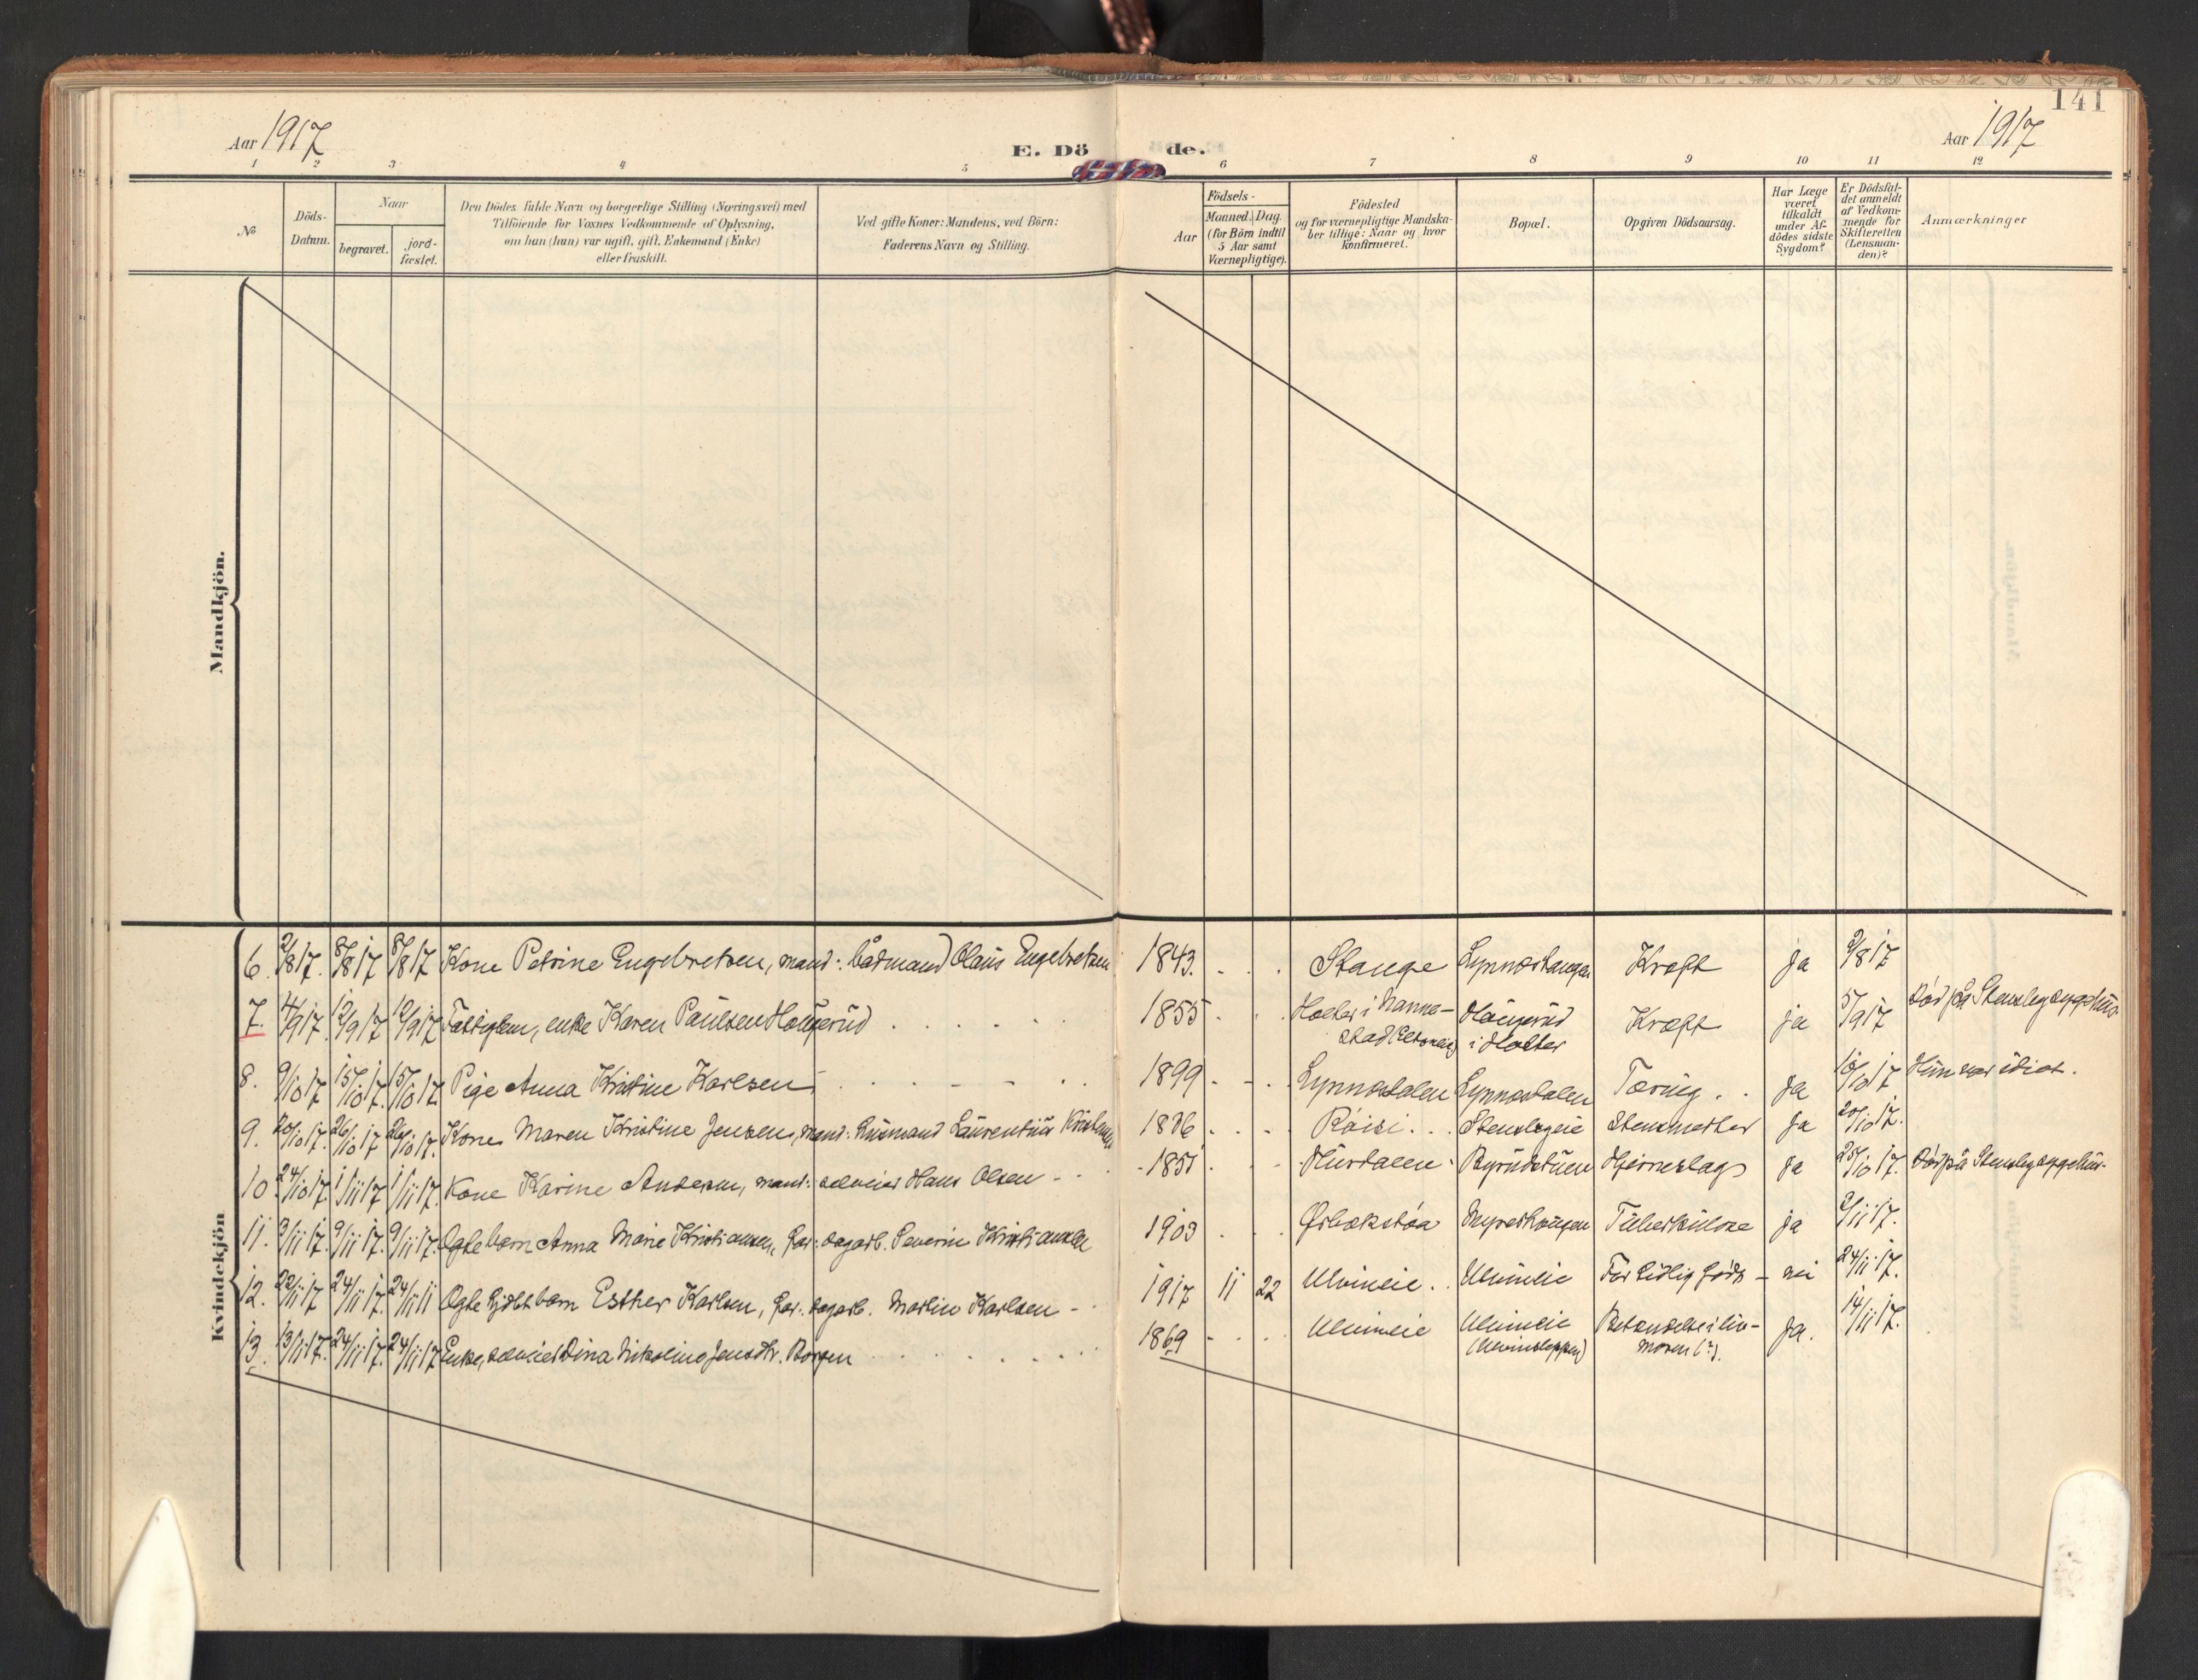 141
Aar 1917
E. Dö de.
Aar 1917
1 2 3 4 5 6 7 8 9 10 11 12
№
Döds-
Datum.
Naar
begravet.
jord-
fæstet.
Den Dödes fulde Navn og borgerlige Stilling (Næringsvei) med
Tilföiende for Voxnes Vedkommende af Oplysning,
om han (hun) var ugift, gift, Enkemand (Enke)
eller fraskilt.
Ved gifte Koner: Mandens, ved Börn:
Faderens Navn og Stilling.
Aar
Födsels-
Maaned. Dag.
(for Börn indtil
5 Aar samt
Værnepligtige).
Födested
og for værnepligtige Mandska-
ber tillige: Naar og hvor
konfirmeret.
Bopæl.
Opgiven Dödsaarsag.
Har Læge
været
tilkaldt
under Af-
dödes sidste
Sygdom?
Er Dödsfal-
det anmeldt
af Vedkom-
mende for
Skifteretten
(Lensman-
den)?
Anmærkninger
Mandkjön.
Kvindekjön
6. 2/8 17. 8/8 17 8/8 17 Kone Petrine Engebretsen, mand: båtmand Olaus Engebretsen 1843. Stange Kræft ja 3/8 17
7. 4/9 17. 12/9 17 12/9 17 enke Karen Paulsen Haugerud 1855 Holter i Nanne-
stad Haugerud
i Holter Kræft ja 5/9 17 Död på Stensbygsygehus.
8. 9/10 17 15/10 17. 15/10 17. Pige Anna Kristine Karlsen 1899 Lynnesdalen Lynnesdalen Tæring. ja 10/10 17 Hun var idiot.
9. 20/10 17. 26/10 17 26/10 17. Kone Maren Kristine Jensen, mand: husmand Laurentius 1876 Råisi. Stensbyeie ja 20/10 17.
10 24/10 17. 1/11 17 1/11 17. Kone Karine Andersen, mand: selveier Hans Olsen 1851 Hurdalen Byrudstuen Hjerneslag ja 25/10 17. Död på Stensbysygehus.
11. 2/11 17. 9/11 17. 9/11 17. Ægte barn Anna Marie Kristiansen, far: dagarb. Severin Kristiansen 1903 Ørbækstøa Tuberkulose ja 2/11 17.
12. 22/11 17 24/11 17. 24/11 11 Ægte hjdbt barn Esther Karlsen, far: dagarb. Martin Karlsen 1917 11 22 Ulvineie Ulvineie For tidlig föds nei 24/11 17.
13. 13/11 17. 24/11 17. 24/11 17 Enke, selveier Dina Nikoline Jensdtr. Borgen 1869 Ulvineie Ulvineie
Betændelse i liv-
moren (?). Ja. 14/11 17.